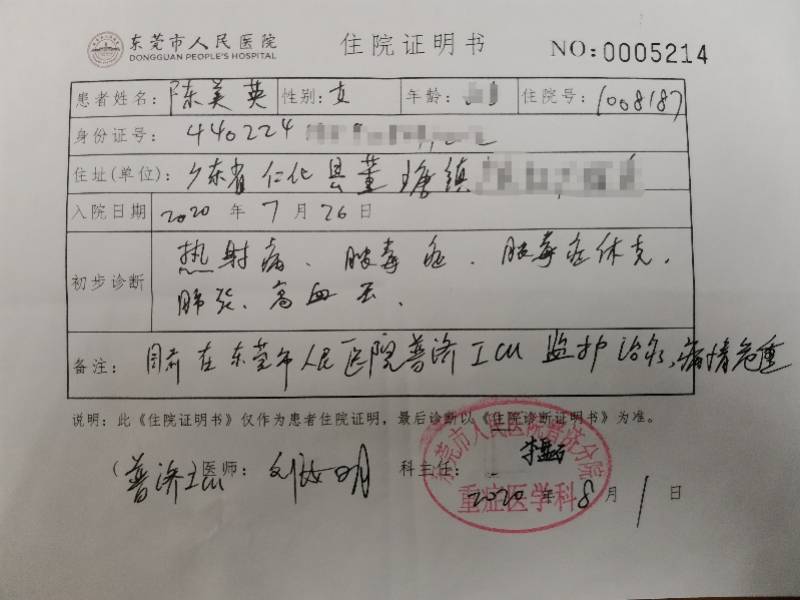 东莞市人民医院 住院证明书 NO:0005214
DONGGUAN PEOPLE'S HOSPITAL
患者姓名: 陈美英 性别: 女 年龄: 住院号: 1008187
身份证号: 440224
住址(单位): 广东省仁化县董塘镇
入院日期 2020 年 7 月 26 日
初步诊断 热射病、脓毒症、脓毒症休克,
肺炎、高血压、
备注: 目前在东莞市人民医院普济ICU监护治疗,病情危重
说明:此《住院证明书》仅作为患者住院证明,最后诊断以《住院诊断证明书》为准。
东莞市人民医院普济分院
(普济ICU)医师: 科主任:
重症医学科
2020 年 8 月 1 日